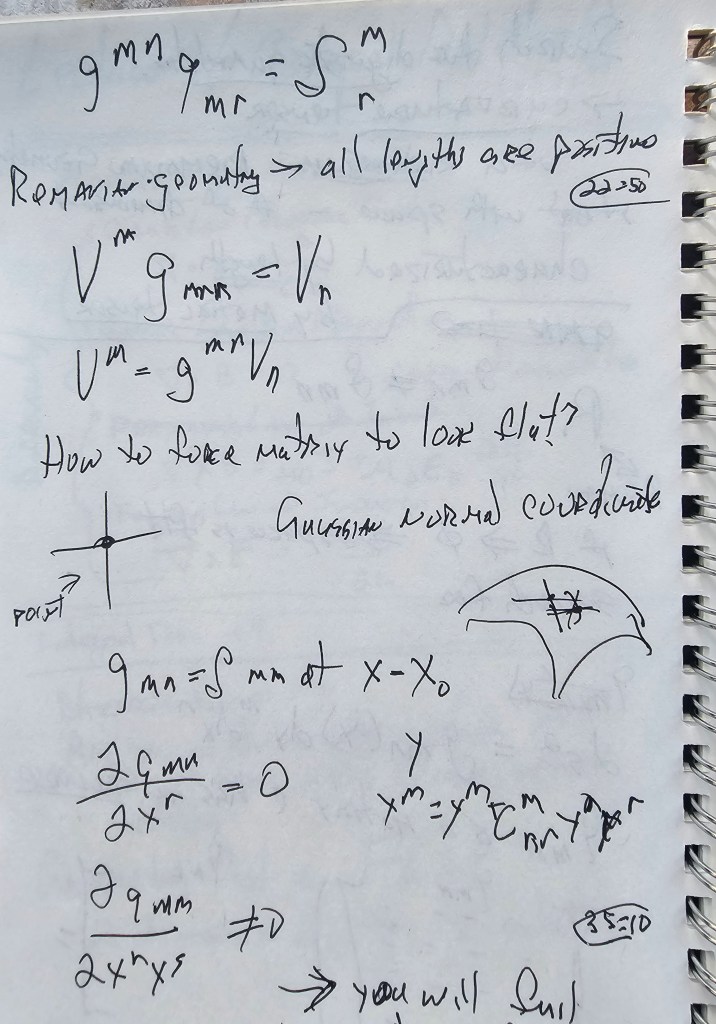 g^{mn} g_{mr} = δ^m_r
Riemannian geometry → all lengths are positive
22:50
V^m g_{mn} = V_n
V^m = g^{mn} V_n
How to force matrix to look flat?
Gaussian normal coordinate
point
g_{mn} = δ_{mn} at x = x_0
y
∂g_{mn} / ∂x^r = 0
x^m = y^m + C^m_{nr} y^n y^r
∂g_{mn} / ∂x^r x^s ≠ 0
35:10
→ you will find